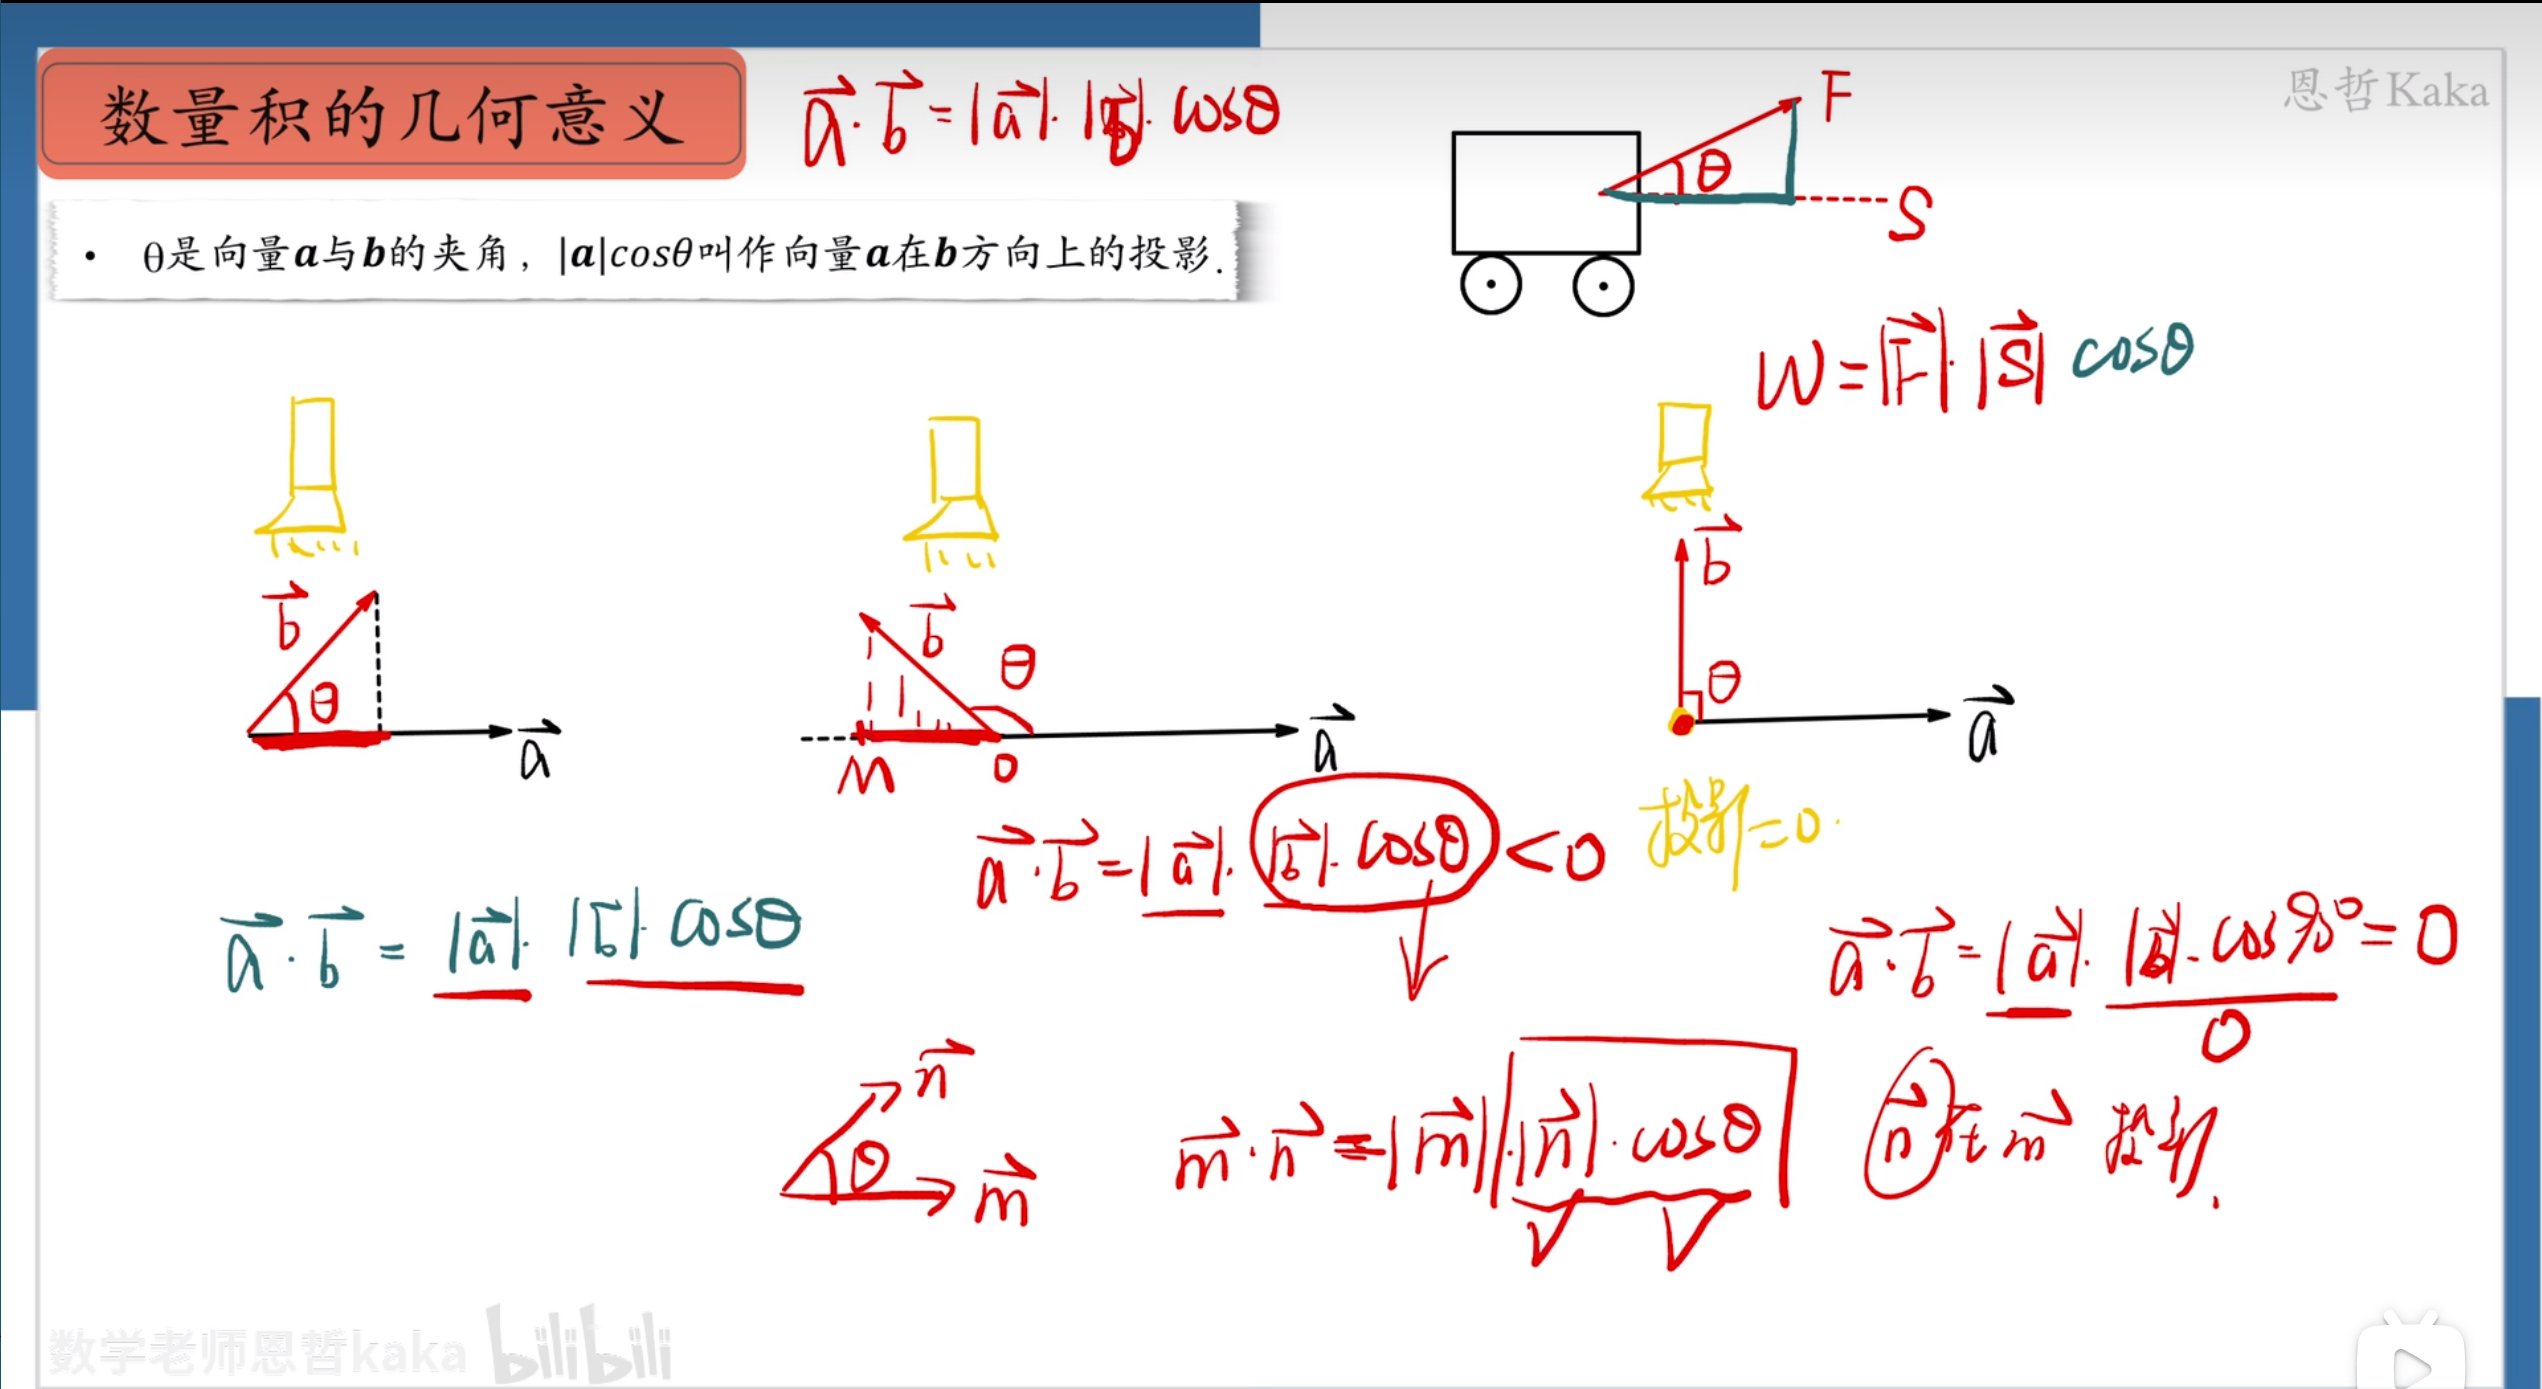 数量积的几何意义
a⃗·b⃗=|a⃗|·|b⃗|·cosθ
F
θ
S
恩哲Kaka
• θ是向量a与b的夹角，|a|cosθ叫作向量a在b方向上的投影.
W=|F⃗|·|S⃗| cosθ
b⃗
θ
a⃗
b⃗
θ
M
O
a⃗
b⃗
θ
a⃗
投影=0.
a⃗·b⃗=|a⃗|·|b⃗|·cosθ<0
a⃗·b⃗=|a⃗|·|b⃗|·cosθ
a⃗·b⃗=|a⃗|·|b⃗|·cos90°=0
0
n⃗
θ
m⃗
m⃗·n⃗=|m⃗|·|n⃗|·cosθ
n⃗在m⃗投影.
数学老师恩哲kaka bilibili